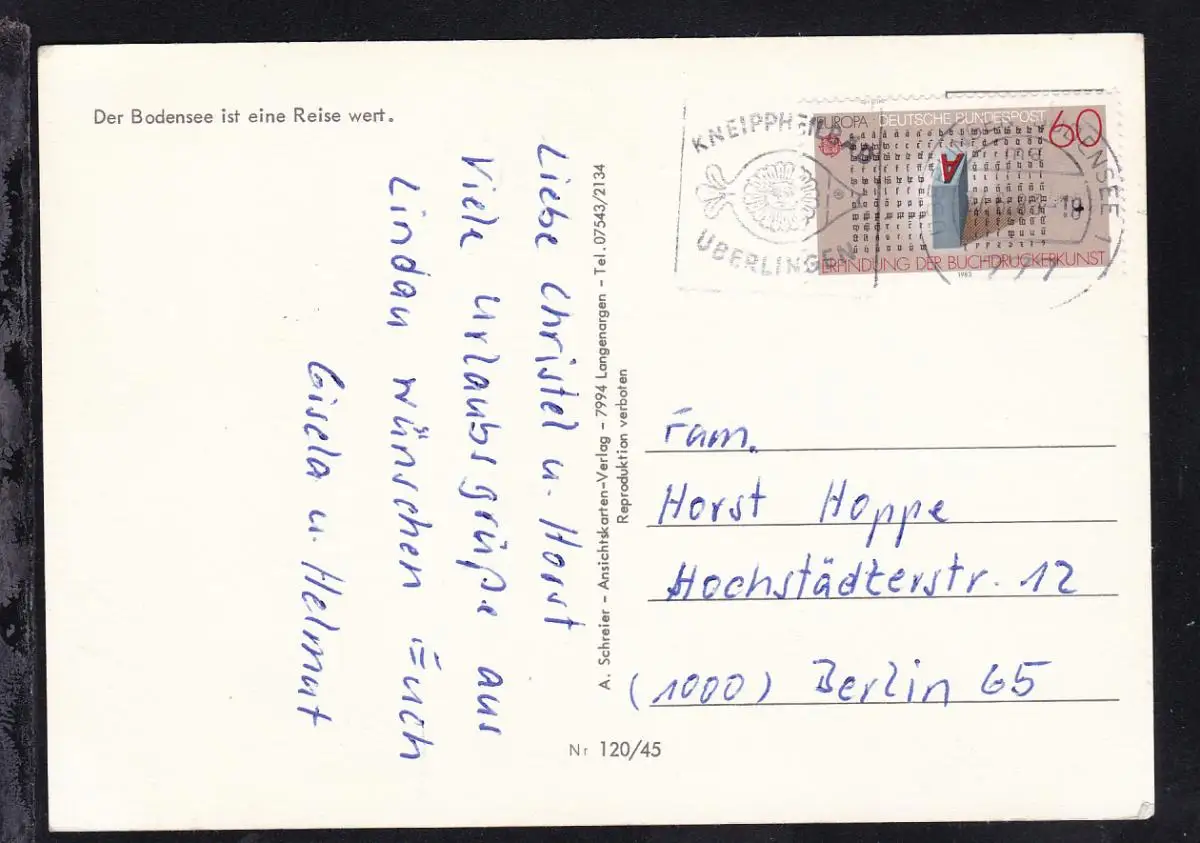 Der Bodensee ist eine Reise wert.
Liebe Christel u. Horst
Viele Urlaubsgrüße aus
Lindau wünschen Euch
Gisela u. Helmut
A. Schreier - Ansichtskarten-Verlag - 7994 Langenargen - Tel. 07543/2134
Reproduktion verboten
Nr 120/45
KNEIPPHEILBAD
ÜBERLINGEN
EUROPA DEUTSCHE BUNDESPOST 60
A
ERFINDUNG DER BUCHDRUCKERKUNST
1983
Fam.
Horst Hoppe
Hochstädterstr. 12
(1000) Berlin 65